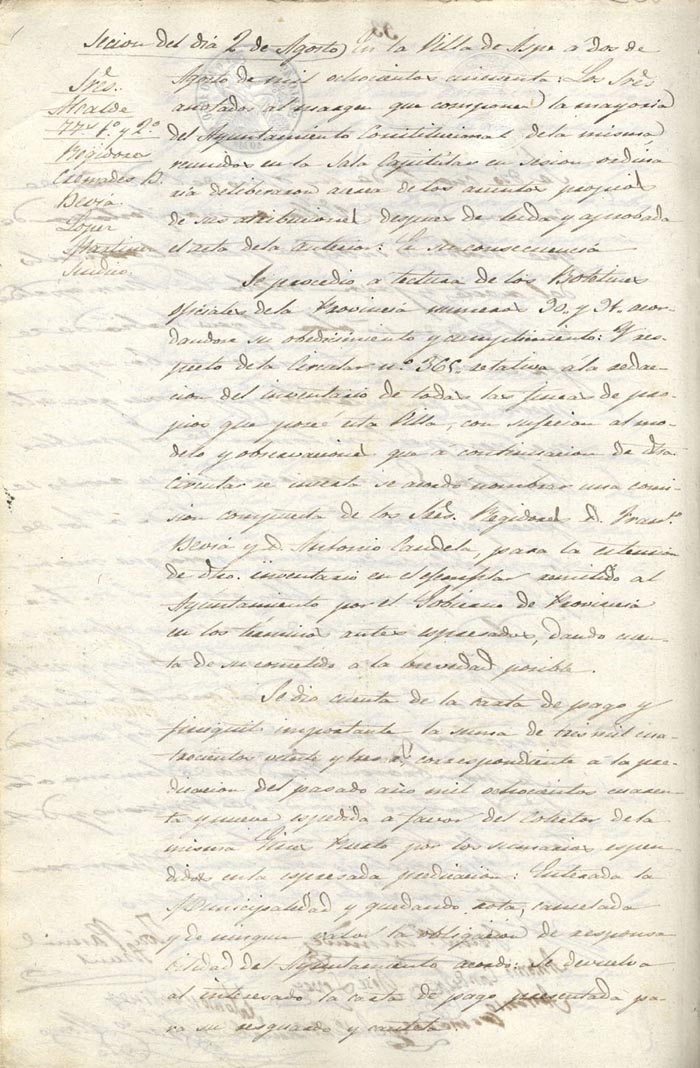 Secion del dia 2 de Agosto) En la Villa de Aspe a dos de
Sres.
Alcalde
Ttes 1º. y 2º.
Regidores
Cremades B.
Devia
Lopez
Martinez
Sindico.
Agosto de mil ochocientos cincuenta: Los Sres
anotados al margen que componen la mayoria
del Ayuntamiento Constitucional de la misma
reunidos en la Sala Capitular en secion ordina
ria deliberaron acerca de los asuntos propios
de sus atribuciones despues de leida y aprobada
el acta de la anterior: En su consecuencia
Se procedio a lectura de los Boletines
oficiales de la Provincia numeros 90. y 91. acor
dandose su obedecimiento y cumplimiento: Y res
pecto de la Circular nº. 365. relativa á la redac
cion del inventario de todas las fincas de pro
pios que posée esta Villa, con sujecion al mo
delo y observaciones que á continuacion de dha
Circular se inserta se acordó nombrar una comi
sion compuesta de los Sres. Regidores D. Franco.
Devia y D. Antonio Candela, para la estencion
de dho. inventario en el ejemplar remitido al
Ayuntamiento por el Gobierno de Provincia
en los terminos antes espresados, dando cuen
ta de su cometido a la brevedad posible.
Se dio cuenta de la carta de pago y
finiquito importante la suma de tres mil cua
trocientos veinte y tres rs. correspondiente a la pre
dicacion del pasado año mil ochocientos cuaren
ta y nueve espedida a favor del Colector de la
misma Gines Puerto por los sumarios espen
didos en la espresada predicacion: Enterada la
Municipalidad y quedando rota, cancelada
y de ningun valor la obligacion de responsa
bilidad del Ayuntamiento acordó: Se devuelva
al interesado la carta de pago presentada pa
ra su resguardo y cautela